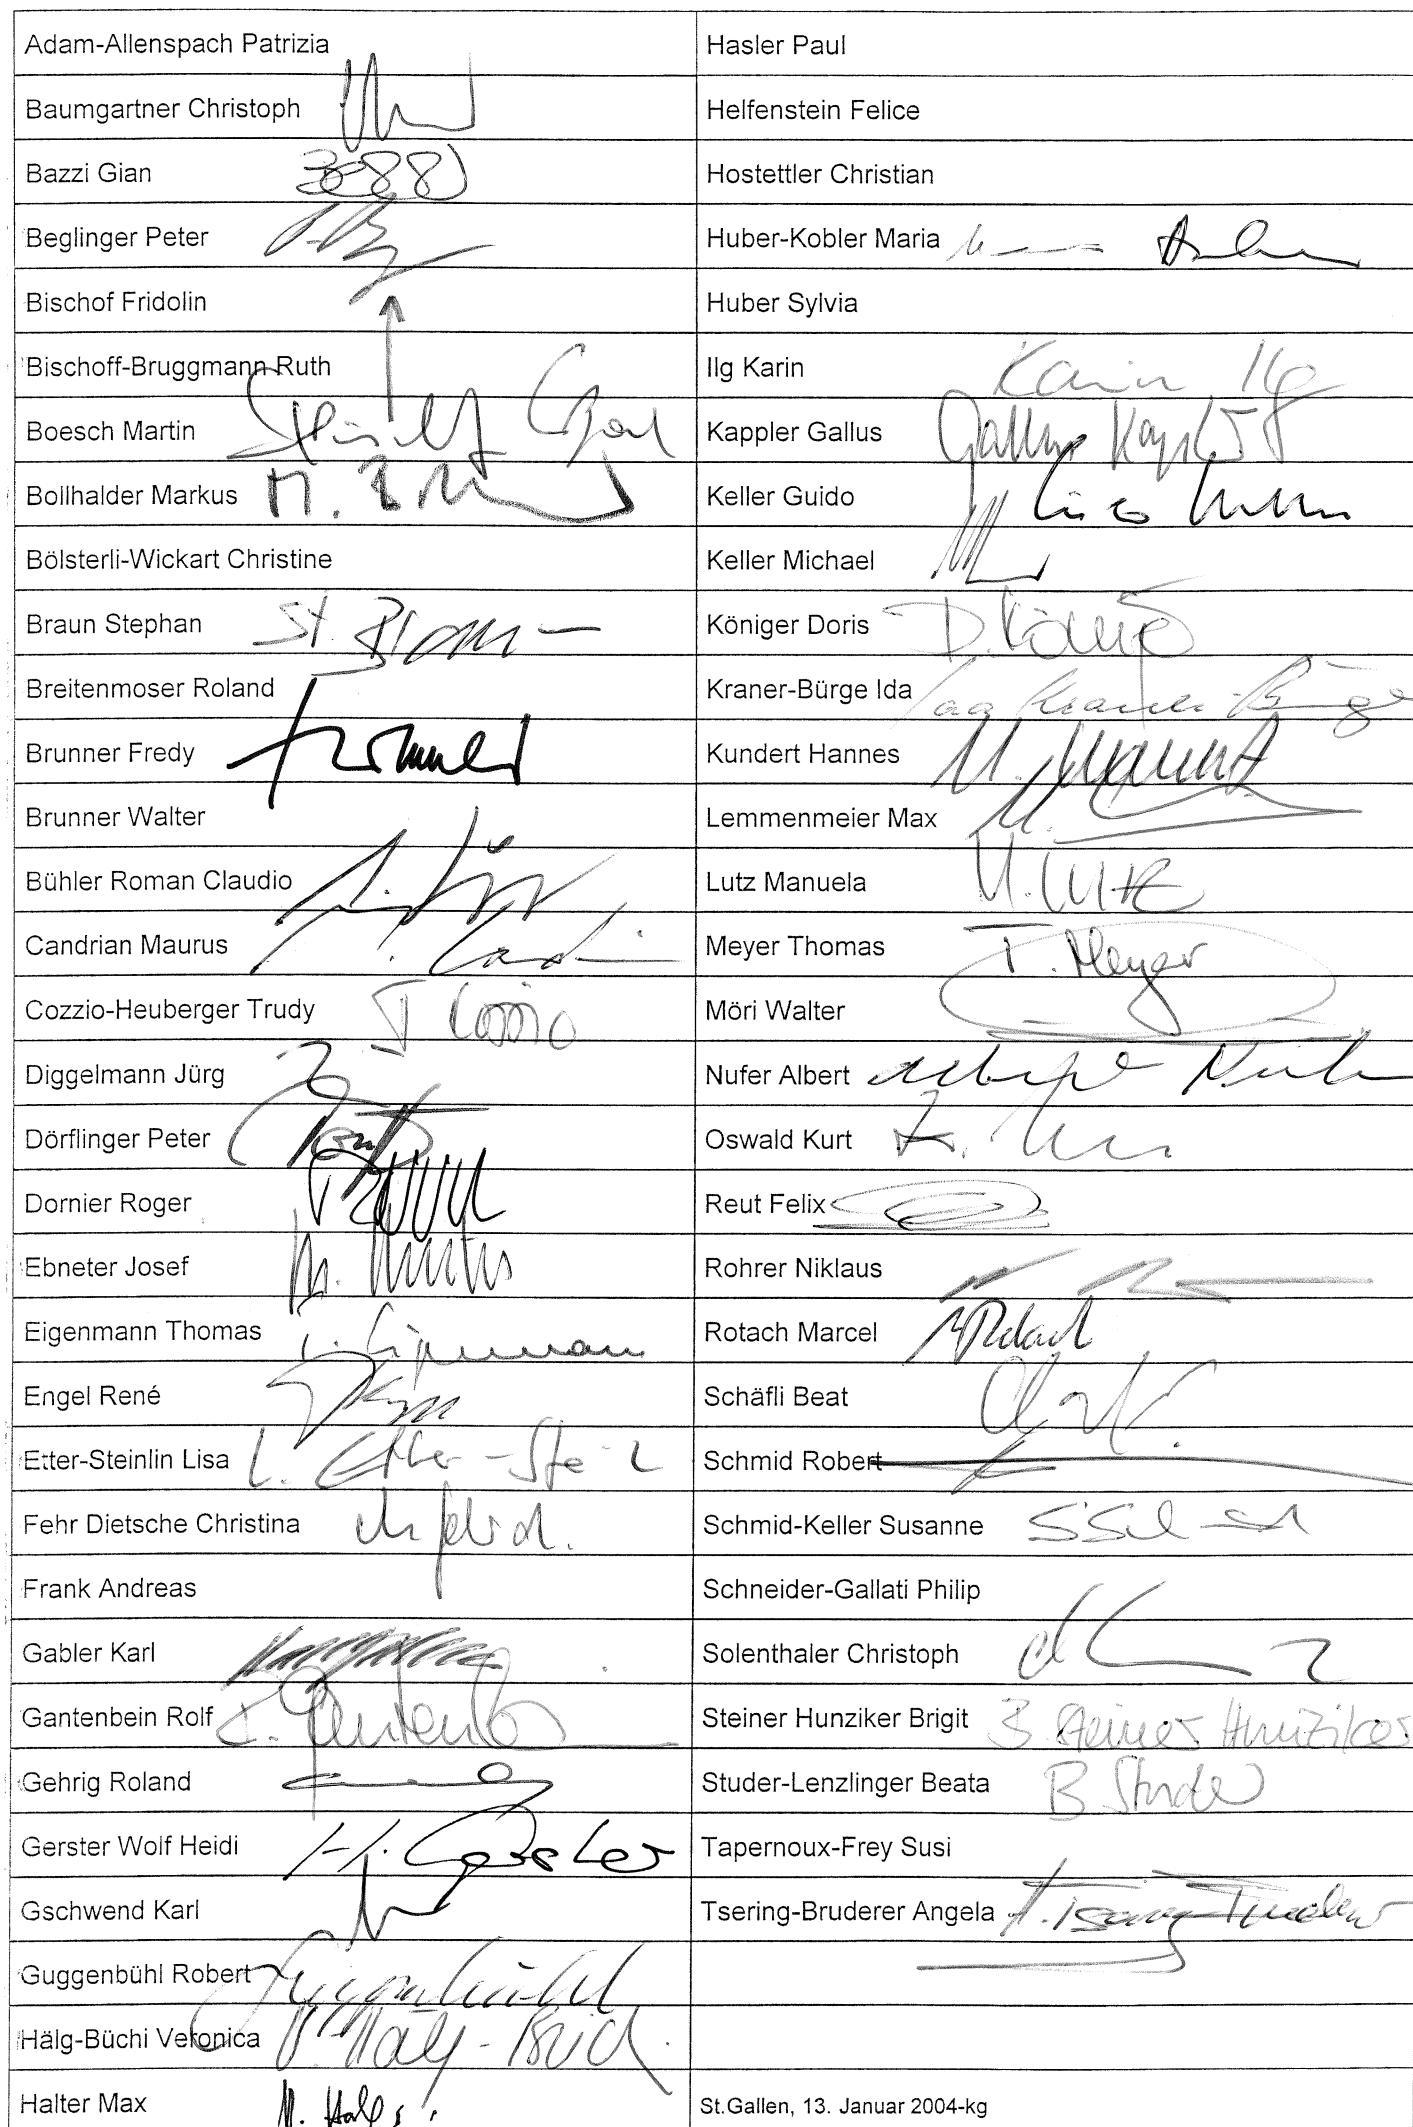 Adam-Allenspach Patrizia
Baumgartner Christoph
Bazzi Gian
Beglinger Peter
Bischof Fridolin
Bischoff-Bruggmann Ruth
Boesch Martin
Bollhalder Markus M. B
Bölsterli-Wickart Christine
Braun Stephan St. Braun
Breitenmoser Roland
Brunner Fredy
Brunner Walter
Bühler Roman Claudio
Candrian Maurus
Cozzio-Heuberger Trudy T Cozzio
Diggelmann Jürg
Dörflinger Peter
Dornier Roger
Ebneter Josef
Eigenmann Thomas T. Eigenmann
Engel René
Etter-Steinlin Lisa L. Etter-Stei
Fehr Dietsche Christina
Frank Andreas
Gabler Karl
Gantenbein Rolf
Gehrig Roland
Gerster Wolf Heidi H. Gerster
Gschwend Karl
Guggenbühl Robert Guggenbühl
Hälg-Büchi Veronica V. Hälg-Büch
Halter Max M. Halter
Hasler Paul
Helfenstein Felice
Hostettler Christian
Huber-Kobler Maria
Huber Sylvia
Ilg Karin Karin Ilg
Kappler Gallus Gallus Kappler
Keller Guido Guido Keller
Keller Michael
Königer Doris D. Königer
Kraner-Bürge Ida Ida Kraner-Bürge
Kundert Hannes
Lemmenmeier Max
Lutz Manuela M. Lutz
Meyer Thomas T. Meyer
Möri Walter
Nufer Albert Albert Nufer
Oswald Kurt
Reut Felix
Rohrer Niklaus
Rotach Marcel MRotach
Schäfli Beat
Schmid Robert
Schmid-Keller Susanne
Schneider-Gallati Philip
Solenthaler Christoph
Steiner Hunziker Brigit B. Steiner Hunziker
Studer-Lenzlinger Beata B Studer
Tapernoux-Frey Susi
Tsering-Bruderer Angela A. Tsering-Bruderer
St.Gallen, 13. Januar 2004-kg